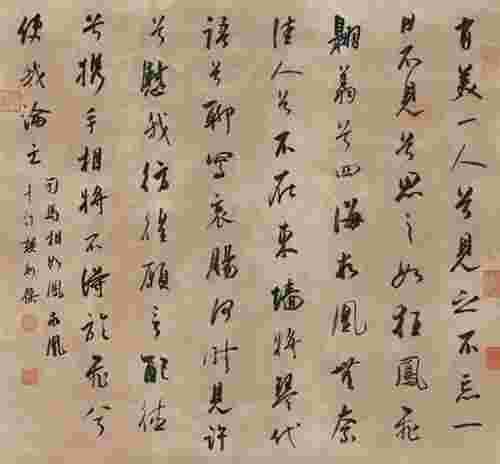 有美一人兮見之不忘一
日不見兮思之如狂鳳飛
翱翔兮四海求凰無奈
佳人兮不在東墻將琴代
語兮聊寫衷腸何時見許
兮慰我彷徨願言配德
兮携手相將不得於飛兮
使我淪亡
司馬相如鳳求凰